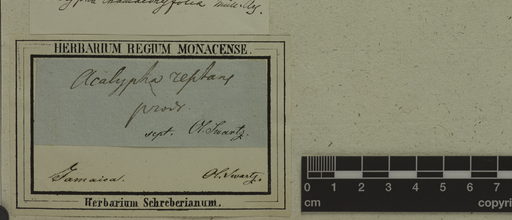 chamaedryfolia Müll. Arg.
HERBARIUM REGIUM MONACENSE.
Acalypha reptans
prodr.
sept. Ol. Swartz.
Jamaica. Ol. Swartz.
Herbarium Schreberianum.
0 1 2 3 4 5 6 7
cm copyri